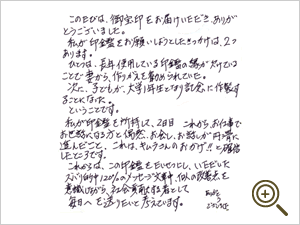 このたびは、御宝印をお届けいただき、ありが
とうございました。
私が印鑑をお願いしようとしたきっかけは、2つ
あります。
ひとつは、長年使用している印鑑の縁が欠けている
ことで妻から、作りかえを勧められていた。
次に、子どもが、大学1年生となり記念に作製す
ることになった。
ということです。
私が印鑑を所持して、2日目 これから、お仕事で
お世話になる方と偶然、お会し、お話しが円滑に
進んだこと、これは、キムラさんのおかげ!!と確信
したところです。
これからは、この印鑑を大いせつにし、いただいた
ズバリ的中120%のメッセージ文章中、個人の改善点を
意識しながら、社会貢献する者として
毎日へを送りたいと考えています。